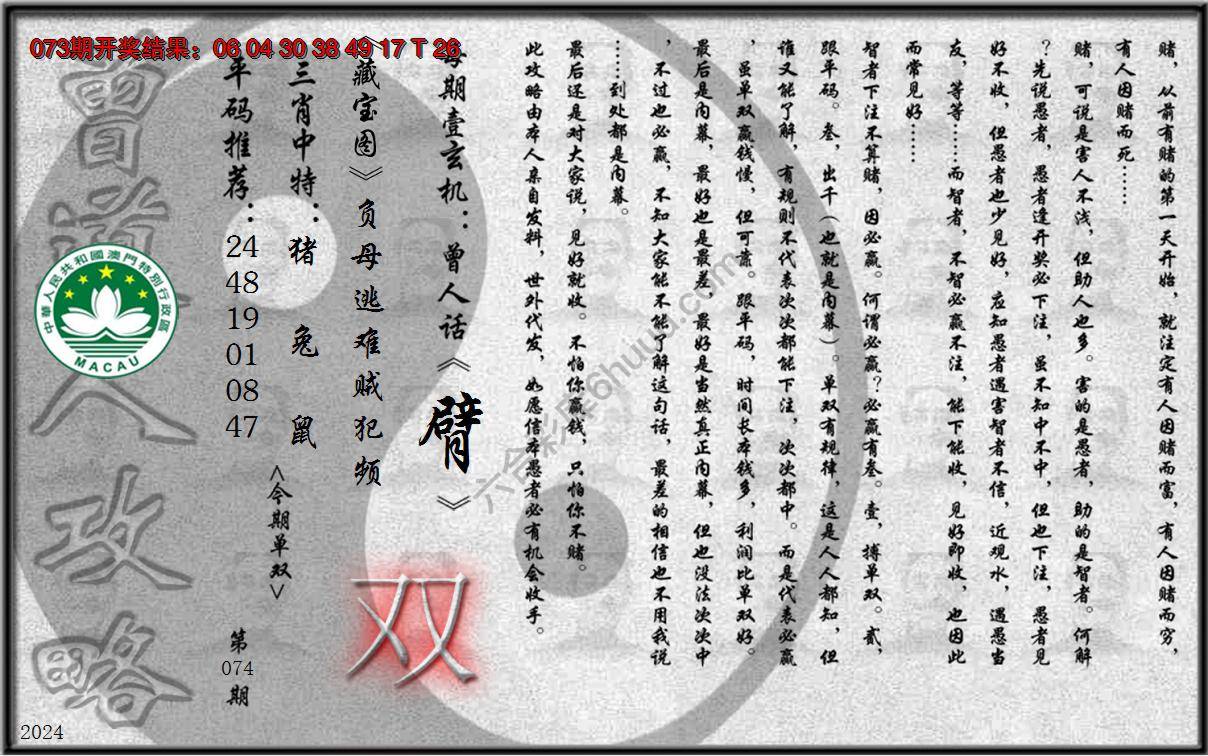 073期开奖结果：06 04 30 38 49 17 T 26
赌，从前有赌的第一天开始，就注定有人因赌而富，有人因赌而穷，
有人因赌而死……
赌，可说是害人不浅，但助人也多。害的是愚者，助的是智者。何解
？先说愚者，愚者逢开奖必下注，虽不知中不中，但也下注，愚者见
好不收，但愚者也少见好，应知愚者遇害智者不信，近观水，遇愚当
友，等等……而智者，不智必赢不注，能下能收，见好即收，也因此
而常见好……
智者下注不算赌，因必赢。何谓必赢？必赢有叁。壹，搏单双。贰，
跟平码。叁，出千（也就是内幕）。单双有规律，这是人人都知，但
谁又能了解，有规则不代表次次都能下注，次次都中。而是代表必赢
，虽单双赢钱慢，但可靠。跟平码，时间长本钱多，利润比单双好。
最后是内幕，最好也是最差，最好是当然真正内幕，但也没法次次中
，不过也必赢，不知大家能不能了解这句话，最差的相信也不用我说
……到处都是内幕。
最后还是对大家说，见好就收。不怕你赢钱，只怕你不赌。
此攻略由本人亲自发料，世外代发，如愿信本愚者必有机会收手。
每期壹玄机：曾人话《臂》
《藏宝图》负母逃难贼犯频
双
三肖中特：猪 兔 鼠
<今期单双>
平码推荐：24 48 19 01 08 47
第074期
曾道人攻略
中華人民共和國澳門特別行政區
MACAU
六合彩库6huuu.com
2024